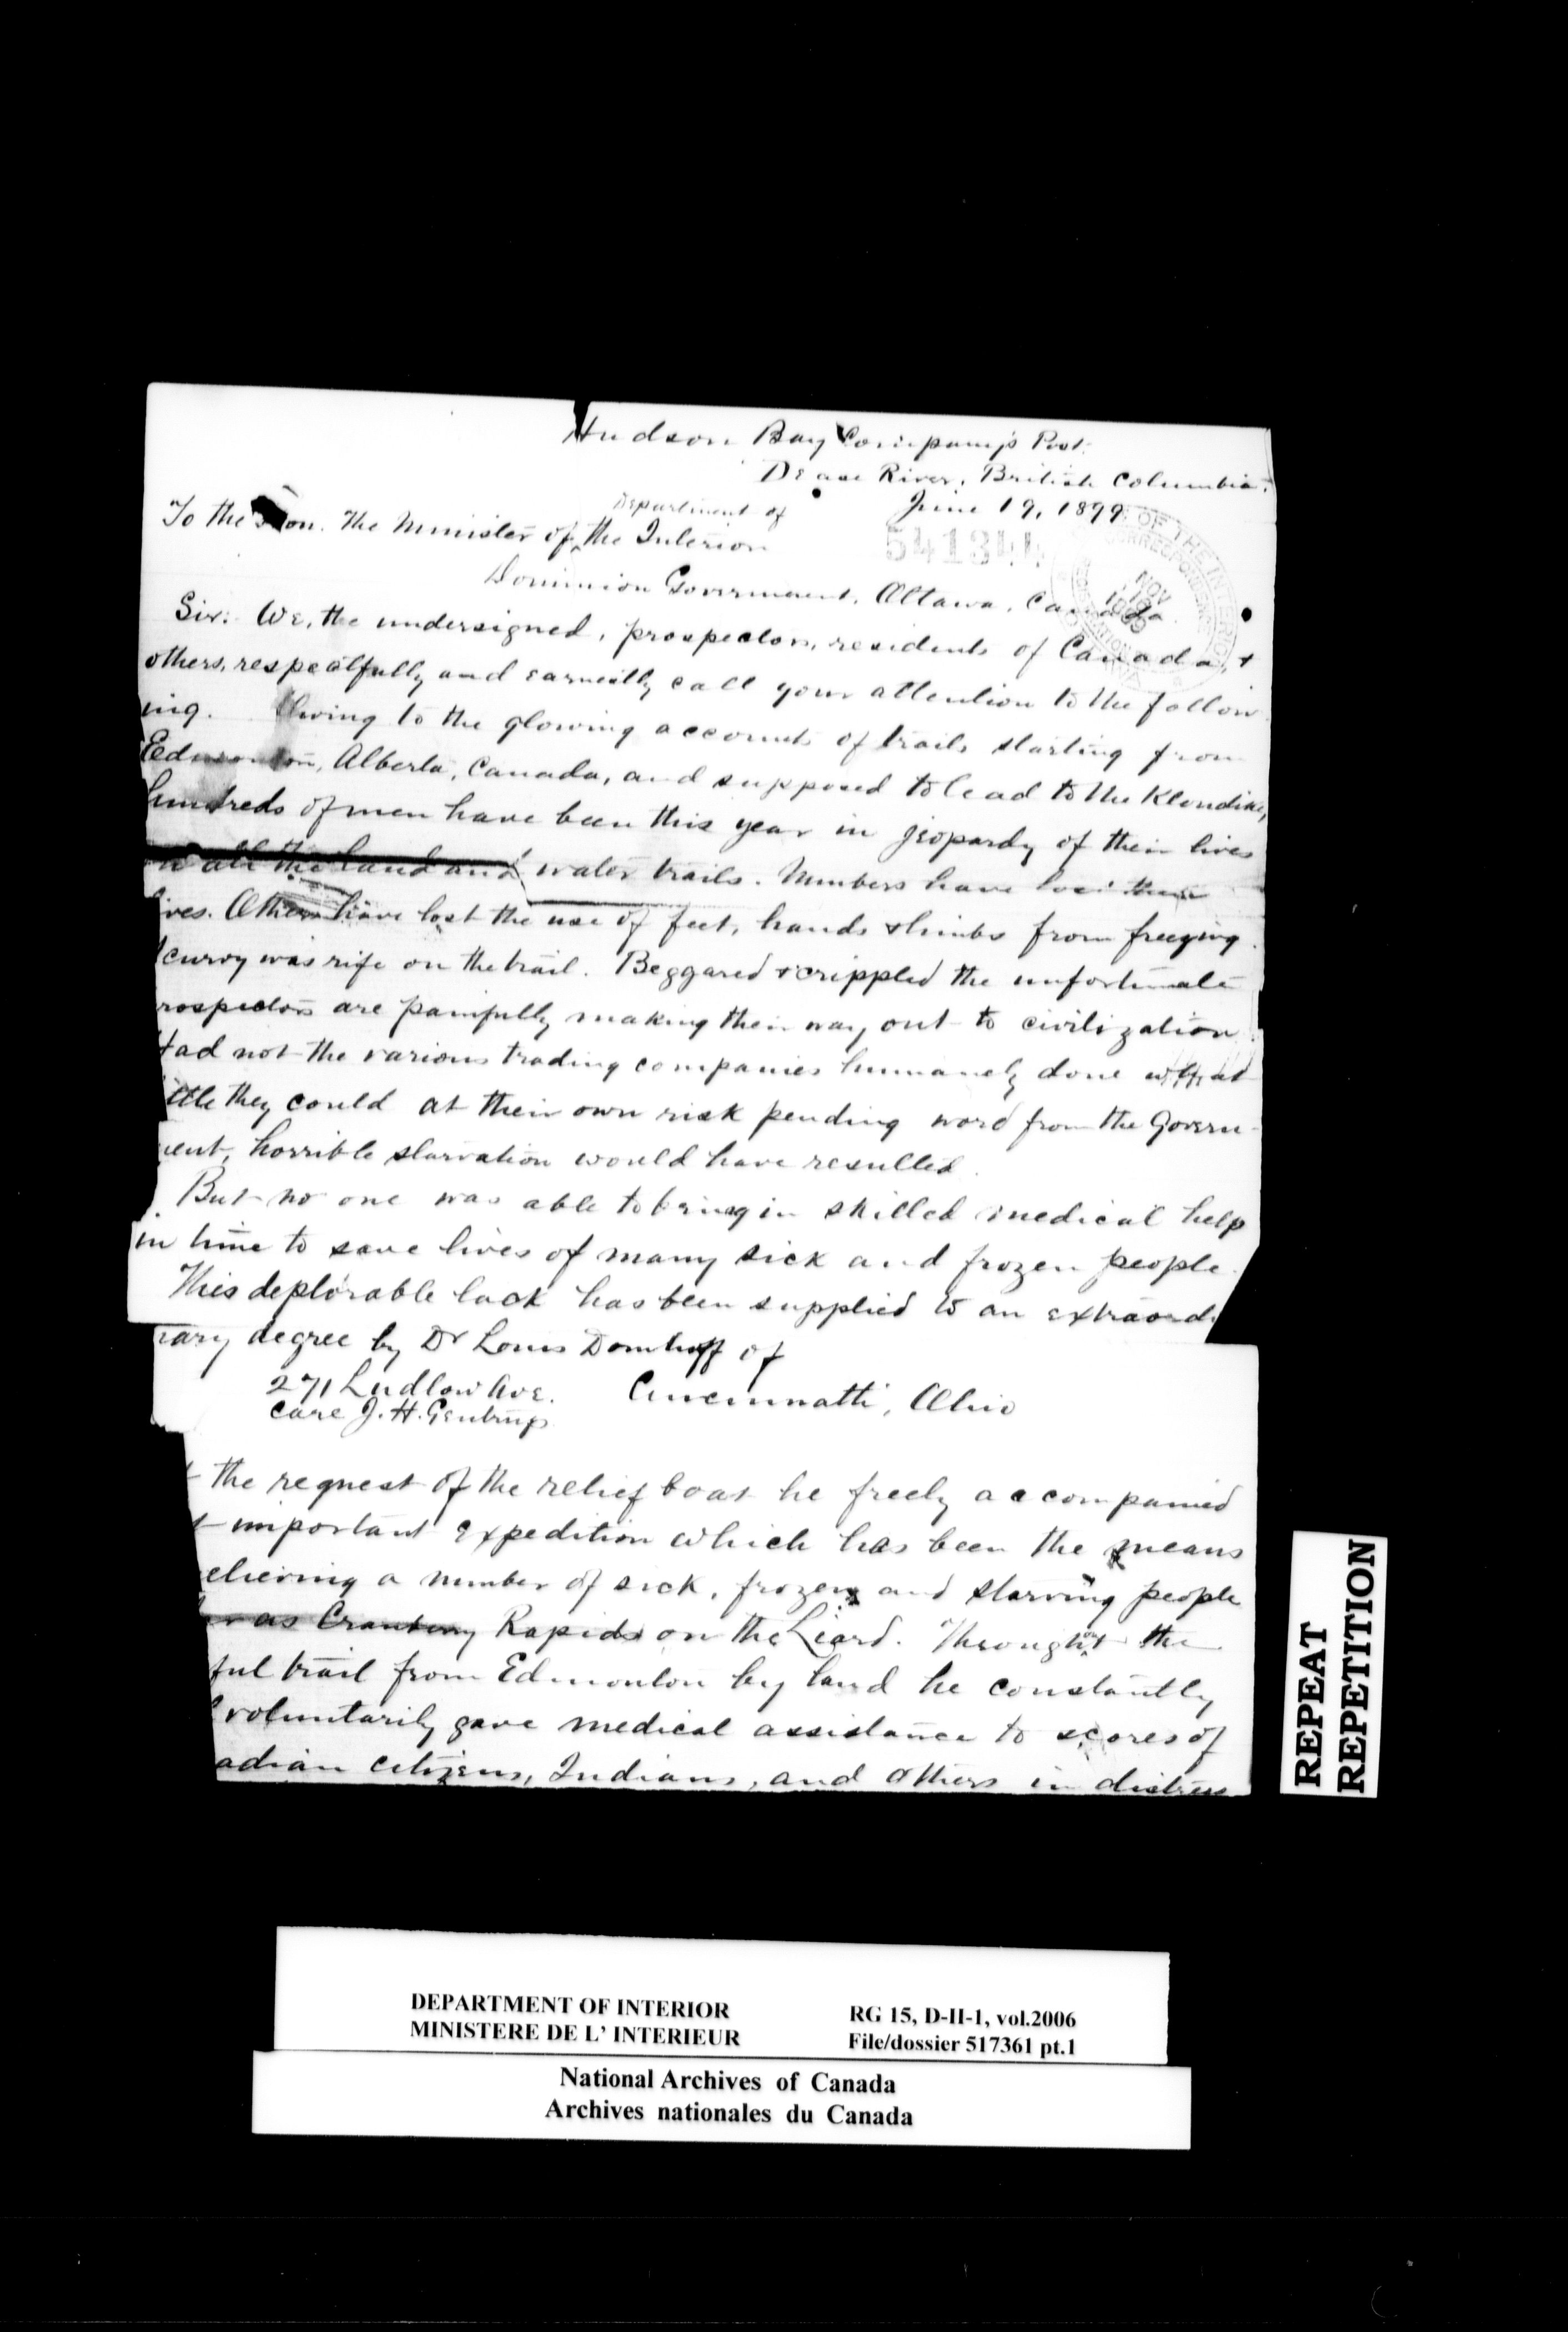 Hudson Bay Company's Post.
Dease River, British Columbia.
June 19, 1899
Department of
To the Hon. The Minister of the Interior
541344
Dominion Government, Ottawa, Canada.
OF THE INTERIOR
NOV
Sir: We, the undersigned, prospectors, residents of Canada, +
others, respectfully and earnestly call your attention to the follow
ing. Owing to the glowing accounts of trails starting from
Edmonton, Alberta, Canada, and supposed to lead to the Klondike,
hundreds of men have been this year in jeopardy of their lives
all the land and water trails. Numbers have lost their
ives. Others have lost the use of feet, hands & limbs from freezing.
curvy was rife on the trail. Beggared & crippled the unfortunate
rospectors are painfully making their way out to civilization.
Had not the various trading companies humanely done what
ittle they could at their own risk pending word from the Govern-
ment, horrible starvation would have resulted.
But no one was able to bring in skilled medical help
in time to save lives of many sick and frozen people.
This deplorable lack has been supplied to an extraordi
nary degree by Dr Louis Domhoff of
271 Ludlow Ave. Cincinnatti, Ohio
care J. H. Gentrup
the request of the relief boat he freely accompanied
t important expedition which has been the means
elieving a number of sick, frozen and starving people
as Cranberry Rapids on the Liard. Throughout the
ful trail from Edmonton by land he constantly
voluntarily gave medical assistance to scores of
adian citizens, Indians, and others in distress
REPEAT
REPETITION
DEPARTMENT OF INTERIOR RG 15, D-II-1, vol.2006
MINISTERE DE L' INTERIEUR File/dossier 517361 pt.1
National Archives of Canada
Archives nationales du Canada